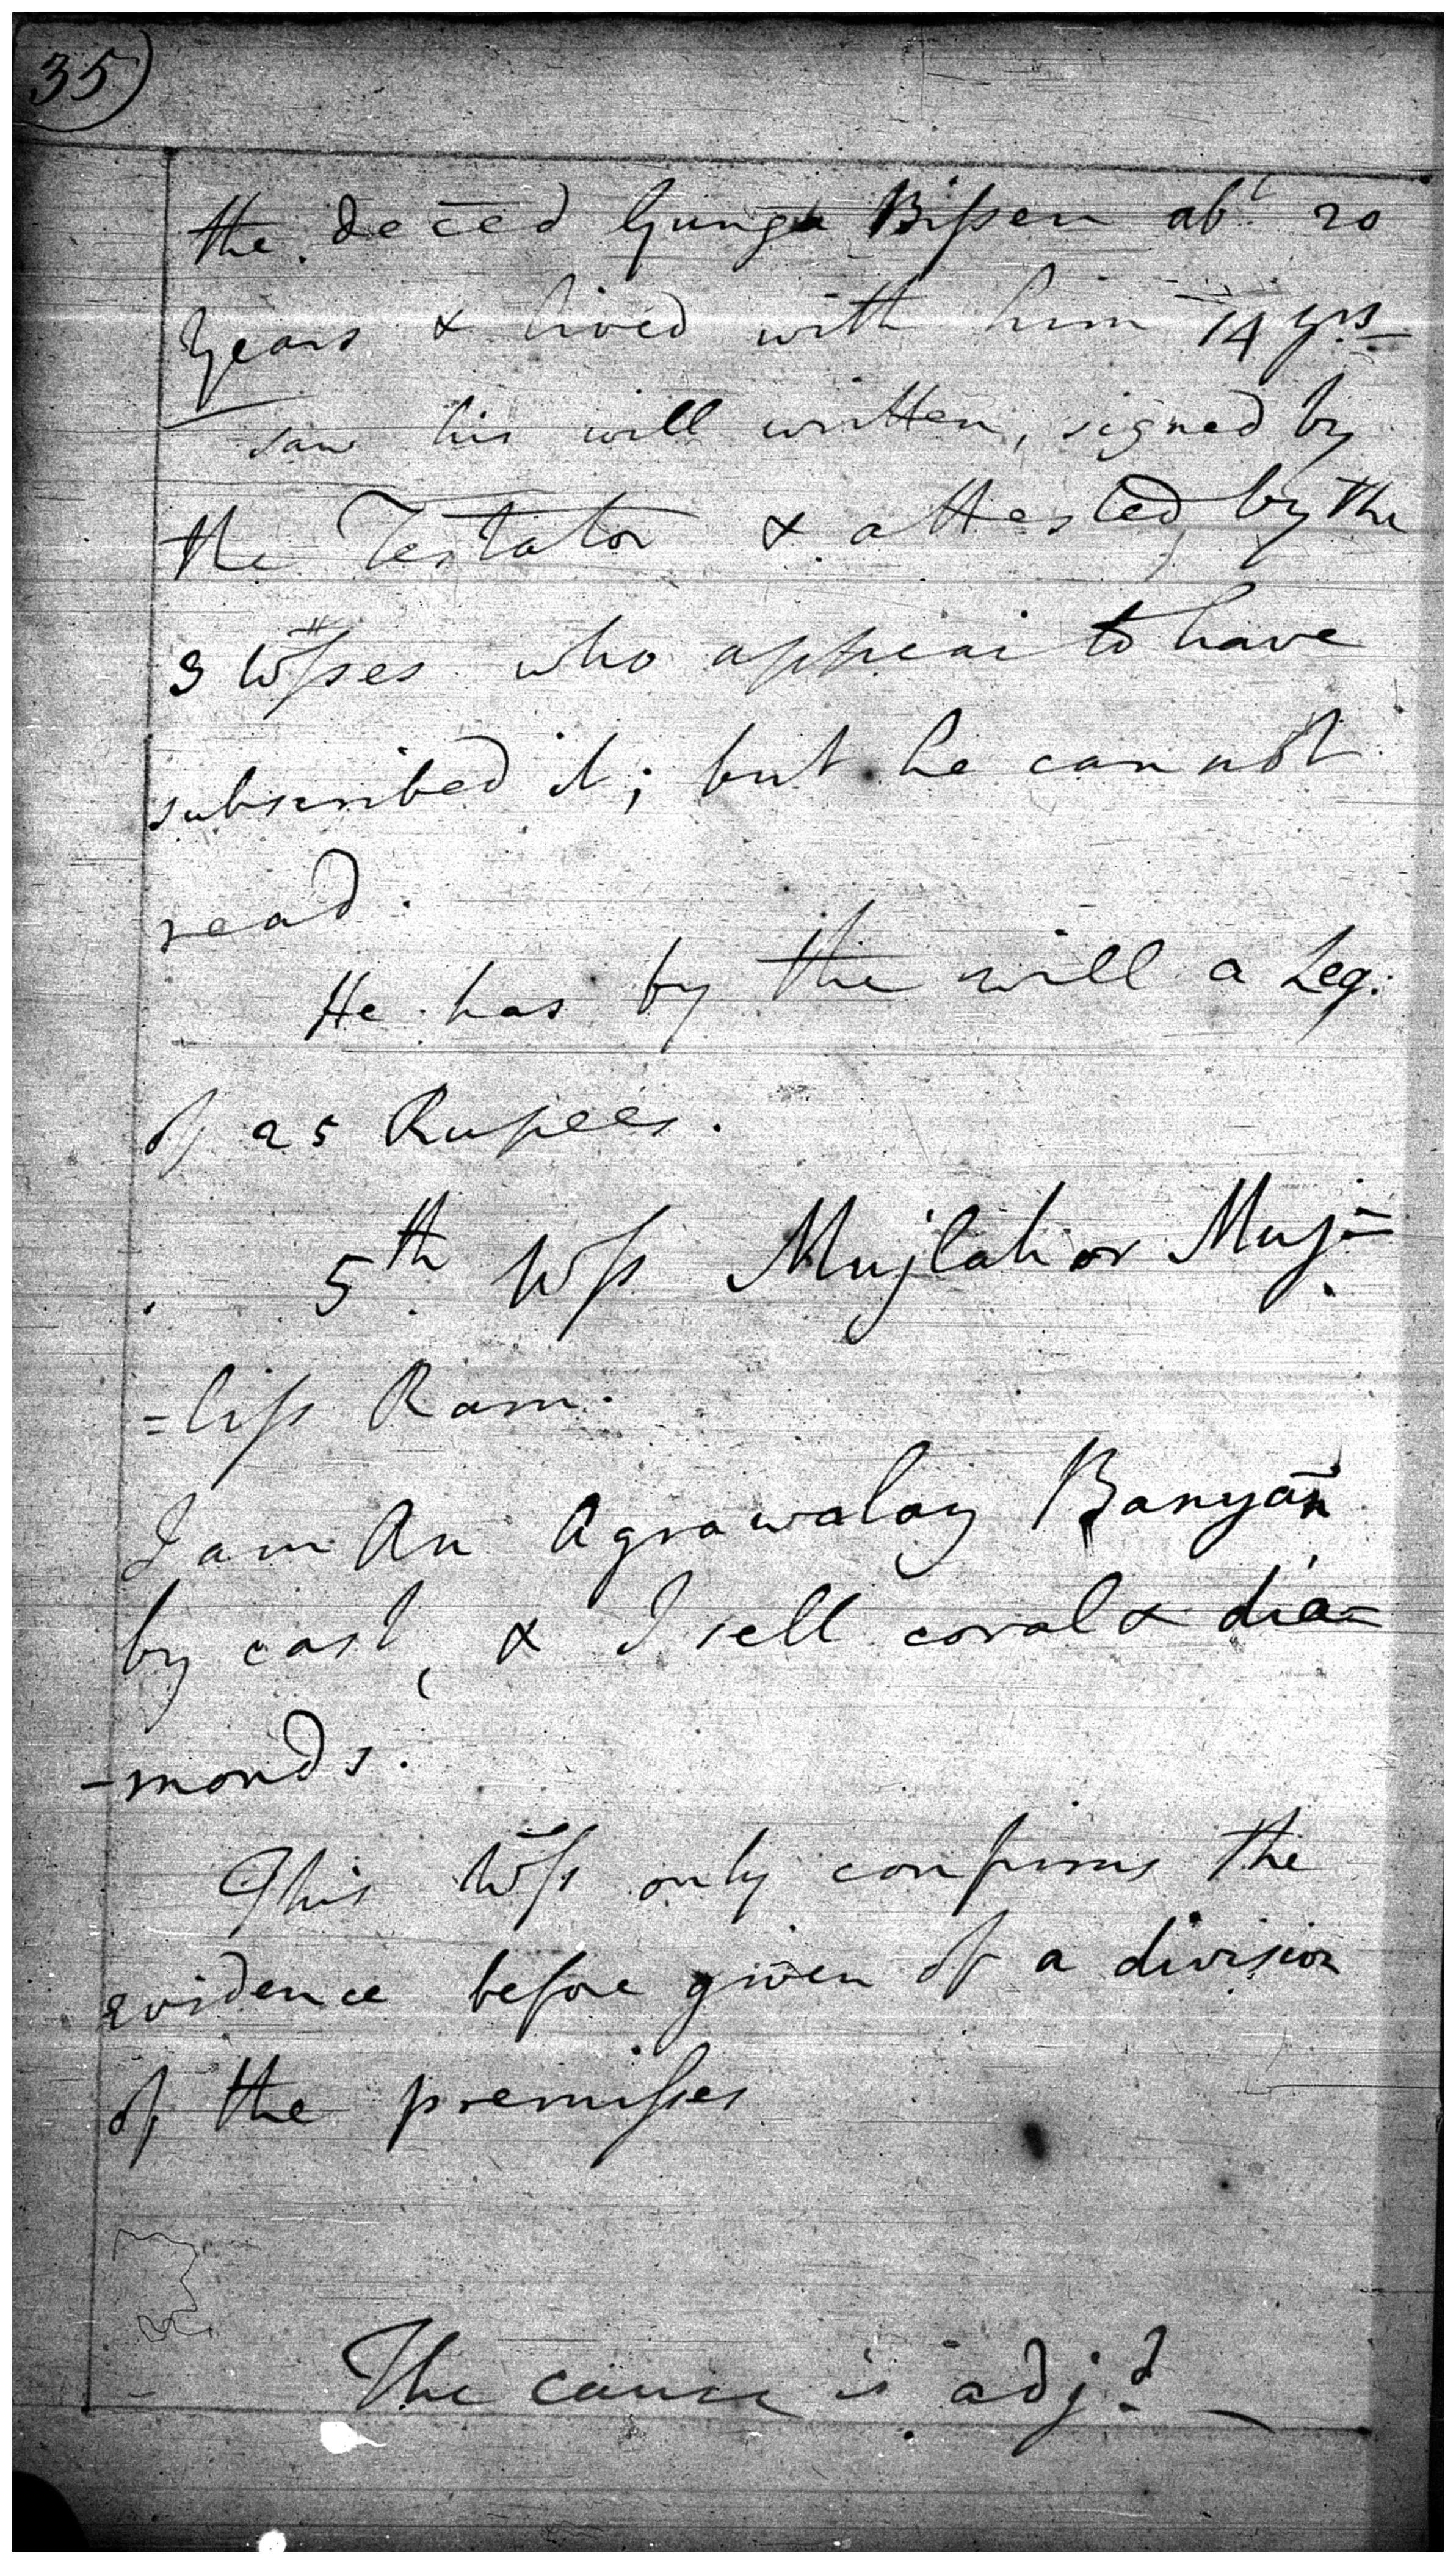 35)
the deced Gunga Bissen abt. 20
years & lived with him 14 yrs
saw his will written, signed by
the Testator & attested by the
3 Wsses who appear to have
subscribed it; but he cannot
read.
He has by the will a Leg:
of 25 Rupees.
5th Wss Mujlah or Muj=
=liss Ram.
I am An Agrawalay Banyan
by cast, & I sell coral & dia=
-monds.
This Wss only confirms the
evidence before given of a division
of the premisses
The cause is adjd.